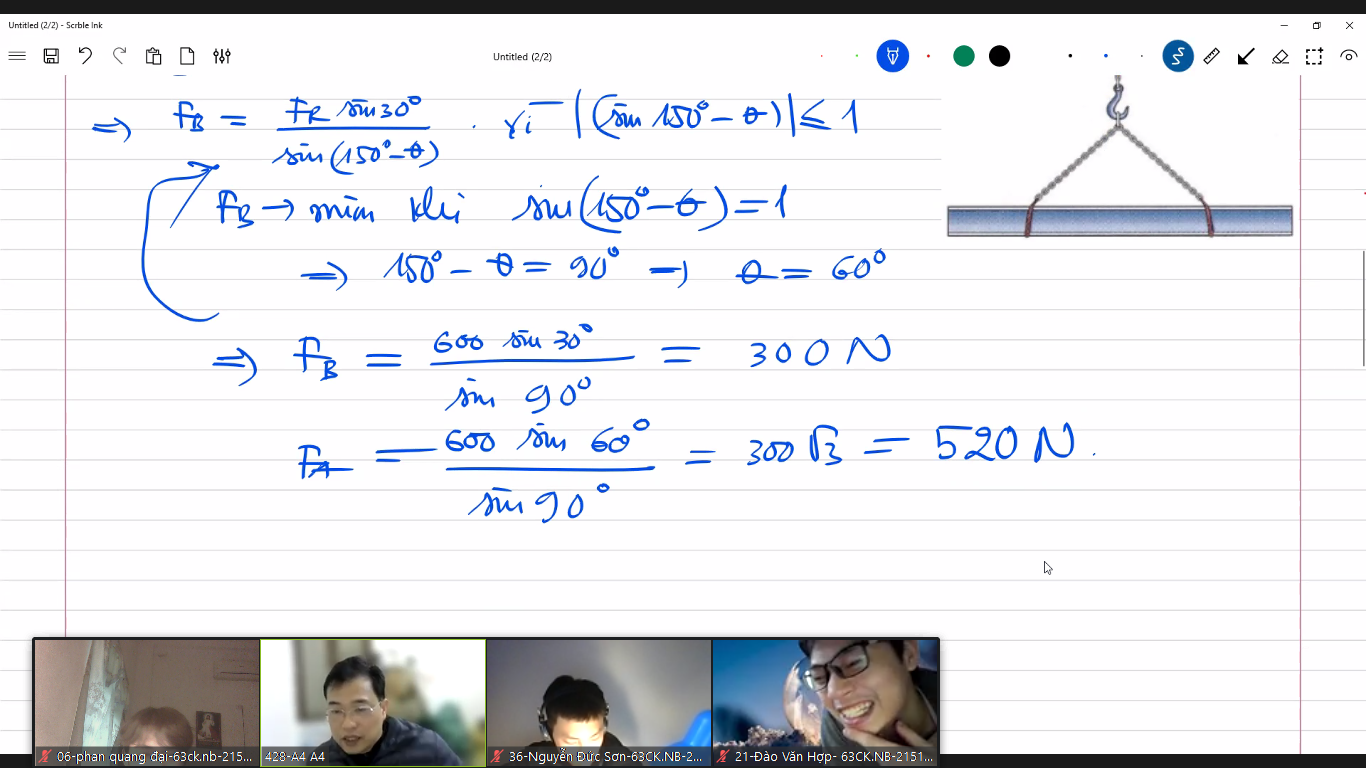 Untitled (2/2) - Scrble Ink
Untitled (2/2)
⇒ F_B = F_R sin 30° / sin(150° - θ) . vì |(sin 150° - θ)| ≤ 1
F_B → min khi sin(150° - θ) = 1
⇒ 150° - θ = 90° → θ = 60°
⇒ F_B = 600 sin 30° / sin 90° = 300 N
F_A = 600 sin 60° / sin 90° = 300 √3 = 520 N.
06-phan quang đại-63ck.nb-215...
428-A4 A4
36-Nguyễn Đức Sơn-63CK.NB-2...
21-Đào Văn Hợp- 63CK.NB-2151...